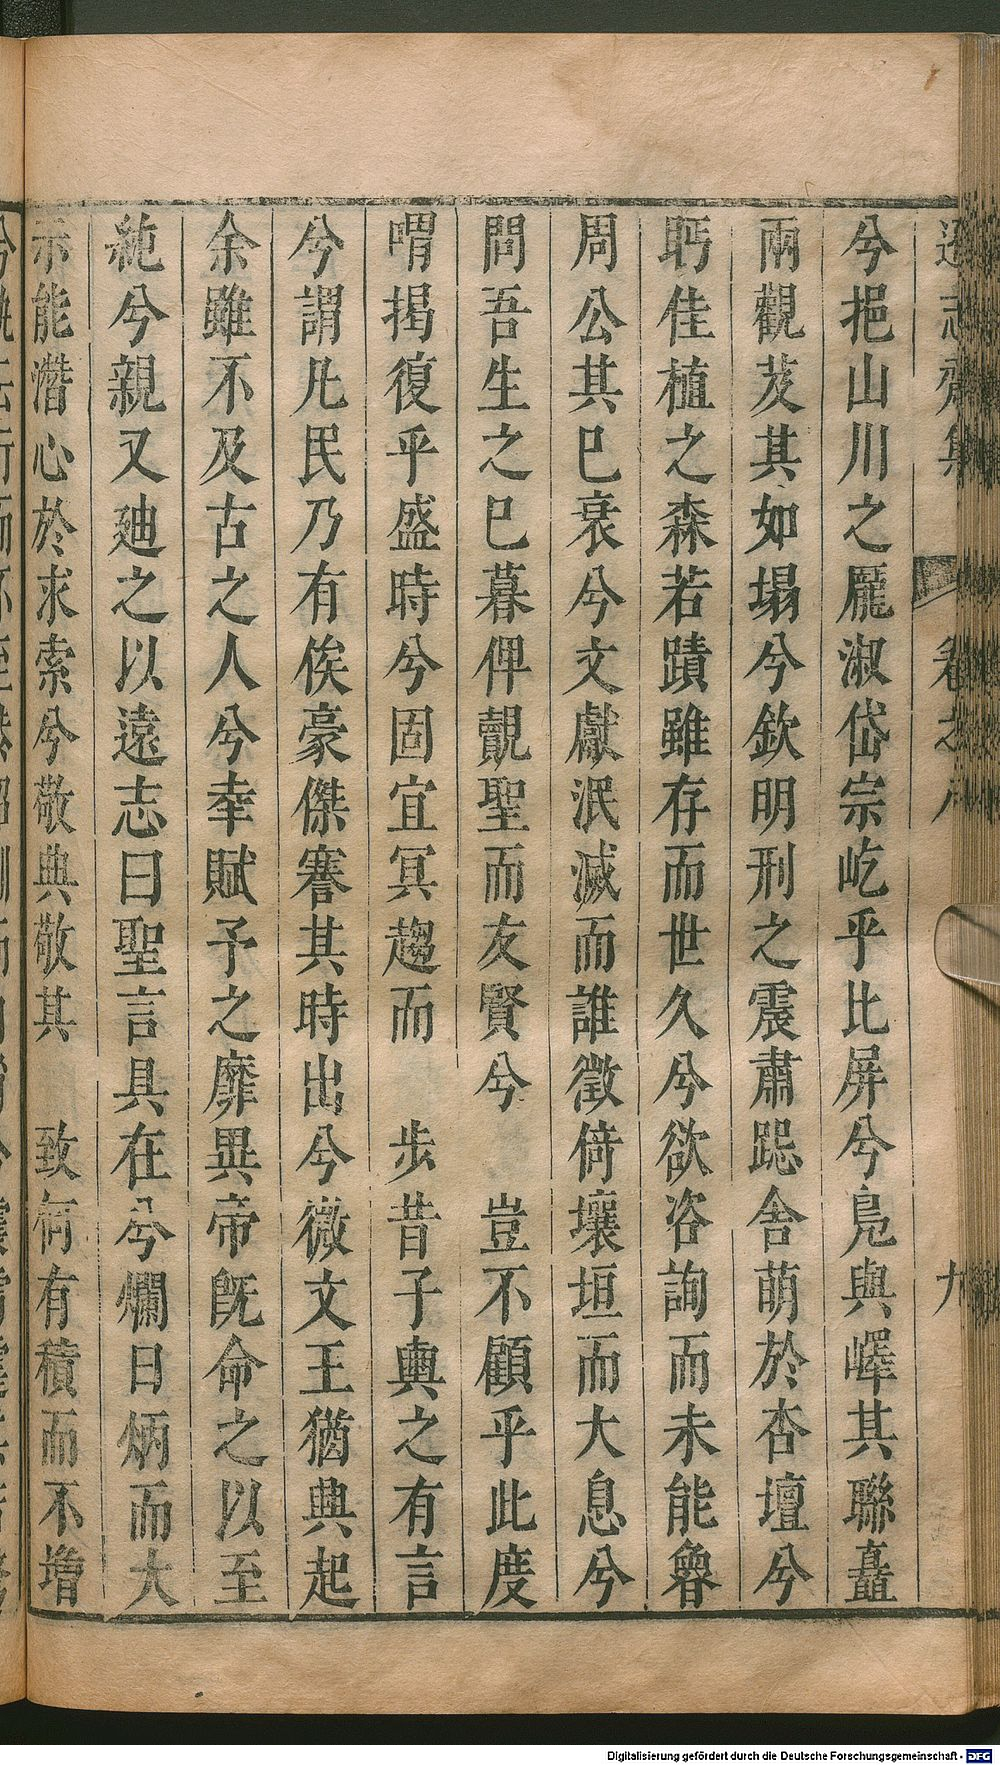 遜志齋集 卷之八 九
兮挹山川之龎淑岱宗屹乎比屏兮鳬與嶧其聯矗
兩觀芨其如塌兮欽明刑之震肅跽舍萌於杏壇兮
眄佳植之森若蹟雖存而世久兮欲咨詢而未能魯
周公其已衰兮文獻泯滅而誰徵倚壤垣而大息兮
問吾生之巳暮俾覿聖而友賢兮 豈不顧乎此度
喟揭復乎盛時兮固宜冥趨而 步昔子輿之有言
兮謂凡民乃有俟豪傑謇其時出兮微文王猶興起
余雖不及古之人兮幸賦予之靡異帝旣命之以至
純兮親又廸之以遠志曰聖言具在兮爛日炳而大
示能潛心於求索兮敬典敬其 致何有積而不增